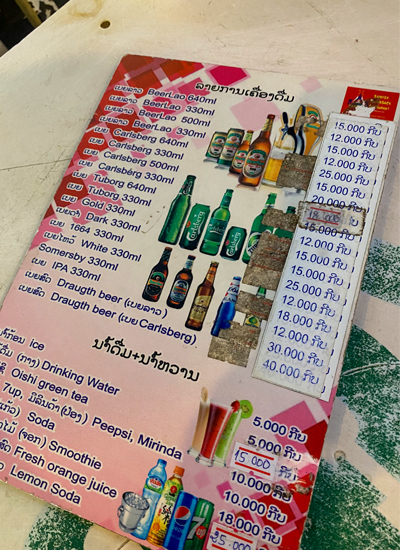 ລາຍການເຄື່ອງດື່ມ
ເບຍລາວ BeerLao 640ml
ເບຍລາວ BeerLao 330ml
ເບຍລາວ BeerLao 500ml
ເບຍລາວ BeerLao 330ml
ເບຍ Carlsberg 640ml
ເບຍ Carlsberg 330ml
ເບຍ Carlsberg 500ml
ເບຍ Carlsberg 330ml
ເບຍ Tuborg 640ml
ເບຍ Tuborg 330ml
ເບຍ Gold 330ml
Dark 330ml
ເບຍ 1664 330ml
White 330ml
Somersby 330ml
ເບຍ IPA 330ml
ເບຍສົດ Draugth beer (ເບຍລາວ)
ເບຍສົດ Draugth beer (ເບຍ Carlsberg)
15.000 ກີບ
12.000 ກີບ
15.000 ກີບ
12.000 ກີບ
25.000 ກີບ
15.000 ກີບ
20.000 ກີບ
18.000 ກີບ
15.000 ກີບ
12.000 ກີບ
15.000 ກີບ
15.000 ກີບ
25.000 ກີບ
12.000 ກີບ
18.000 ກີບ
12.000 ກີບ
30.000 ກີບ
40.000 ກີບ
ນໍ້າດື່ມ+ນໍ້າຫວານ
ນໍ້າກ້ອນ ice
ດື່ມ (ກາງ) Drinking Water
Oishi green tea
7up, ມີລິນດ້າ(ປ໋ອງ) Peepsi, Mirinda
Soda
(ຈອກ) Smoothie
Fresh orange juice
Lemon Soda
5.000 ກີບ
5.000 ກີບ
15 000 ກີບ
10.000 ກີບ
10.000 ກີບ
18.000 ກີບ